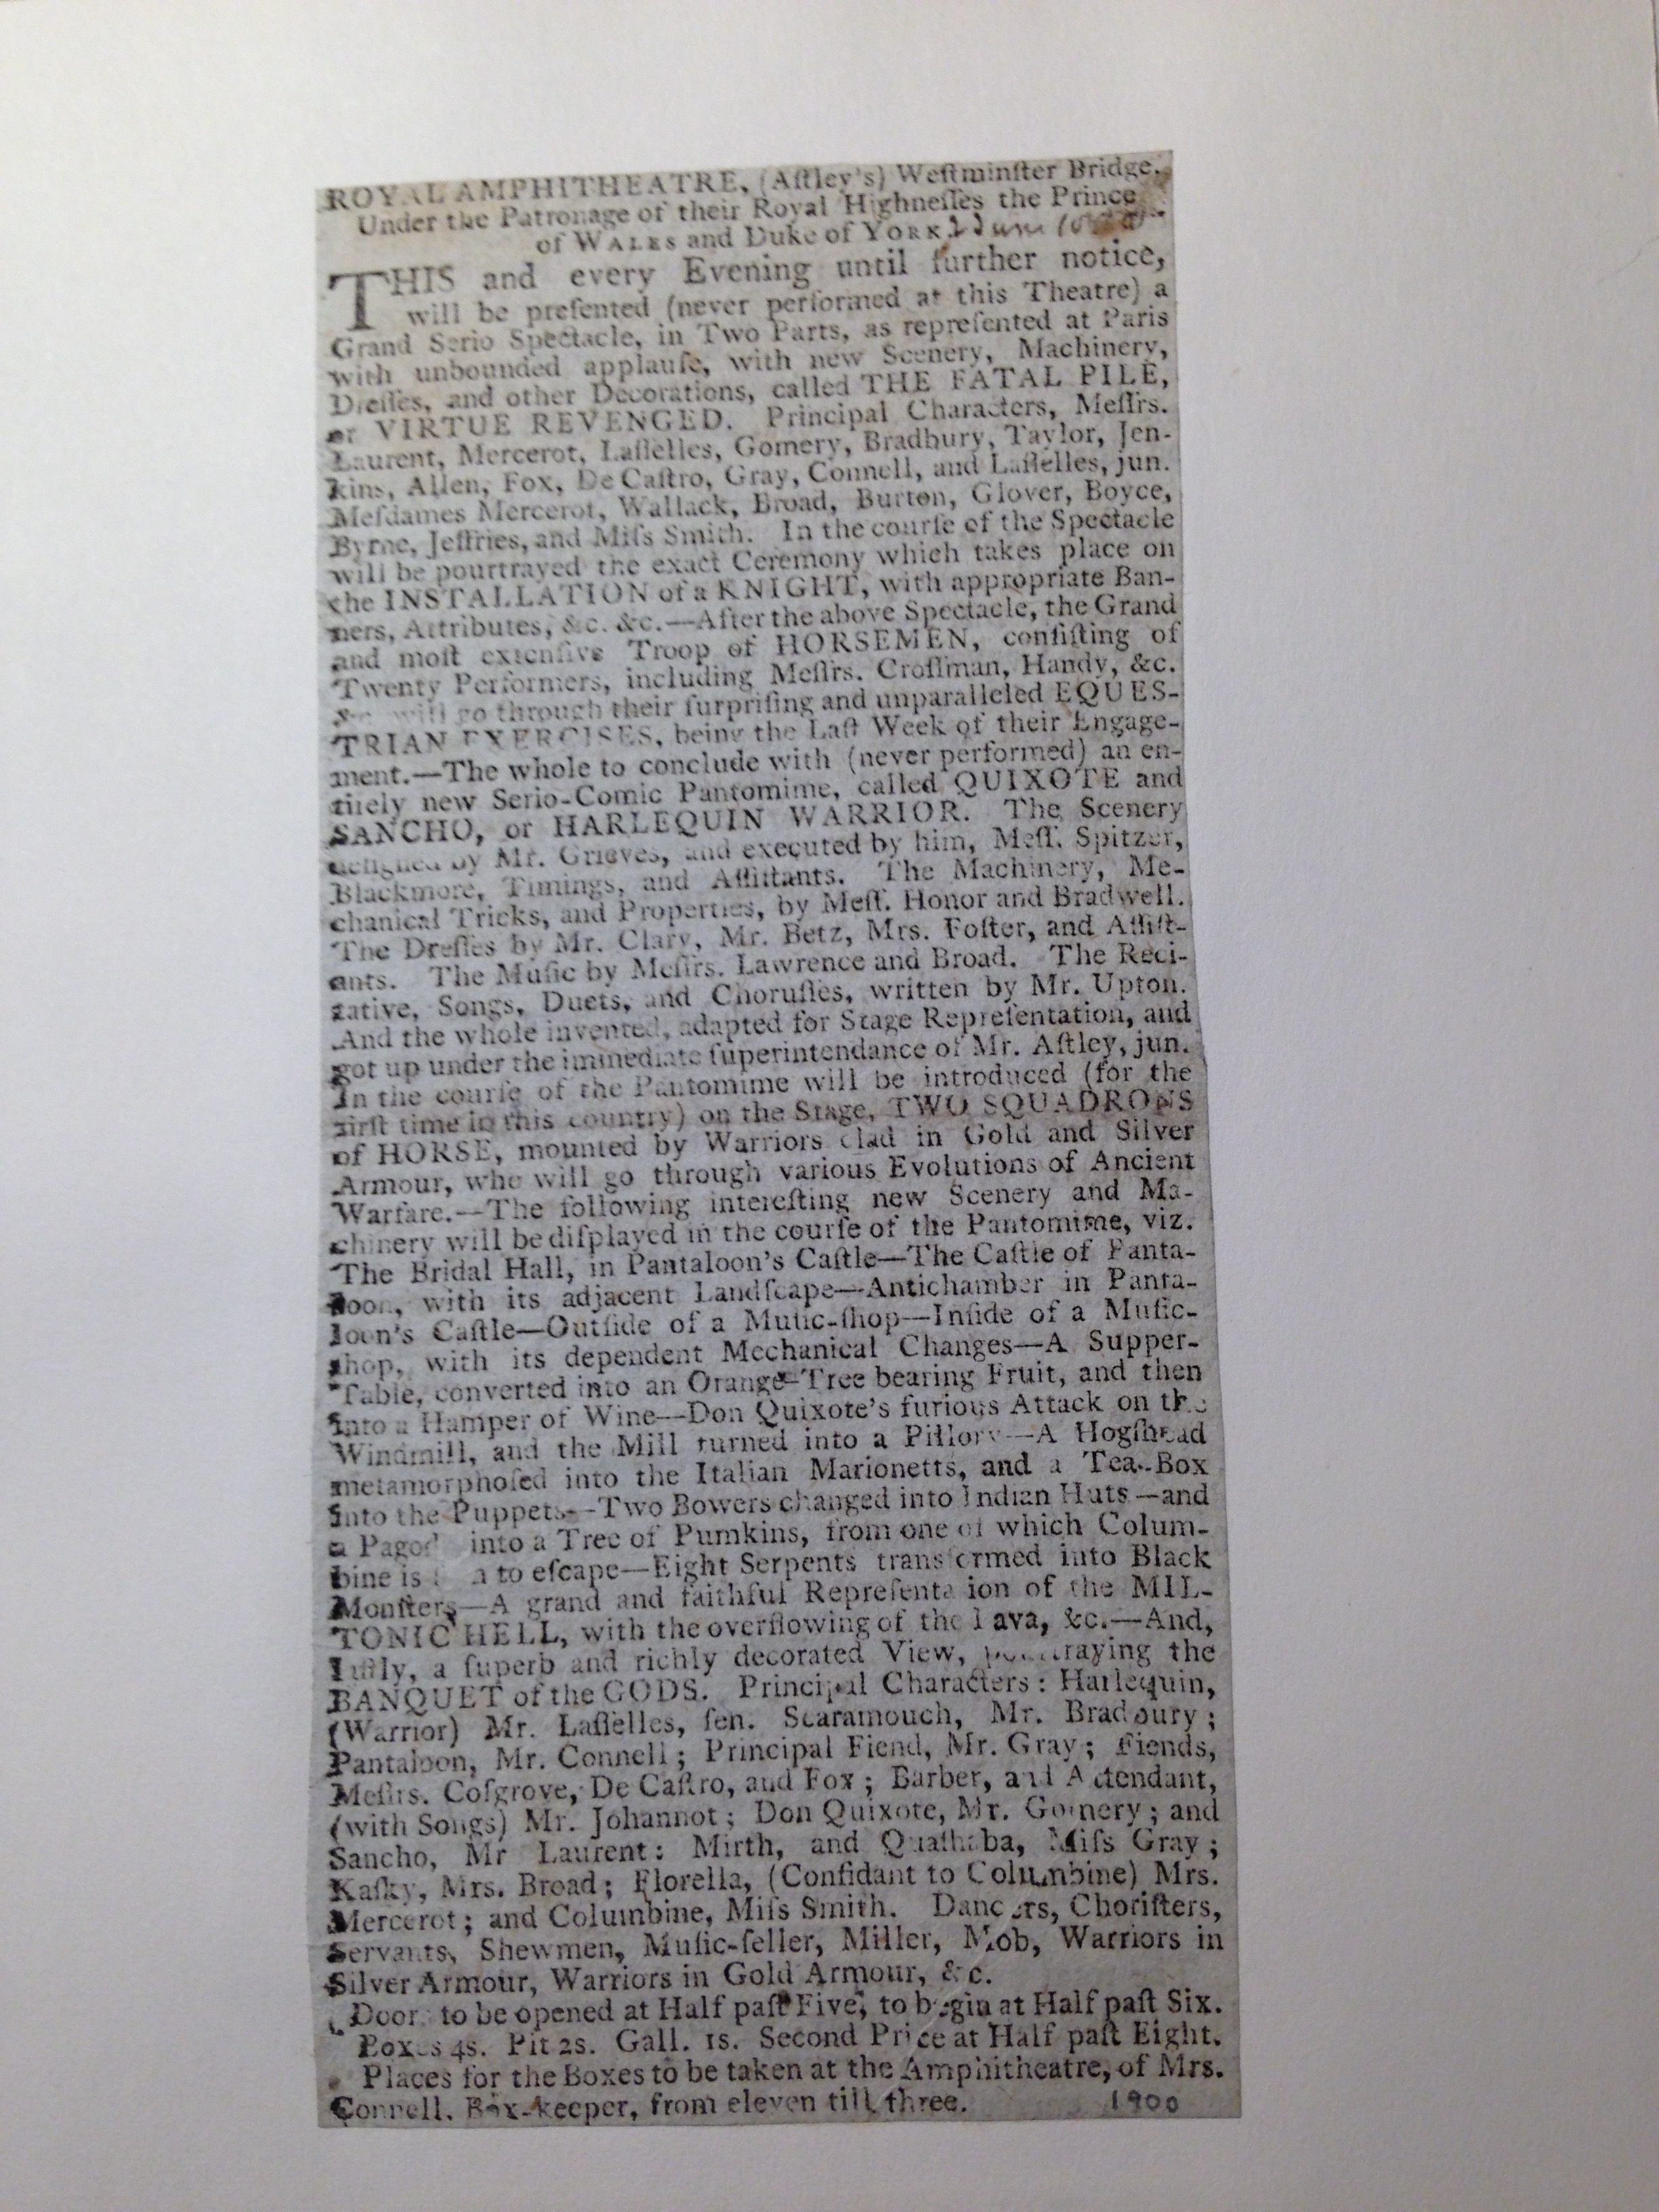 ROYAL AMPHITHEATRE, (Aſtley's) Weſtminſter Bridge.
Under the Patronage of their Royal Highneſſes the Prince
of WALES and Duke of YORK.
THIS and every Evening until further notice,
will be preſented (never performed at this Theatre) a
Grand Serio Spectacle, in Two Parts, as repreſented at Paris
with unbounded applauſe, with new Scenery, Machinery,
Dreſſes, and other Decorations, called THE FATAL PILE,
or VIRTUE REVENGED. Principal Characters, Meſſrs.
Laurent, Mercerot, Laſſelles, Gomery, Bradbury, Taylor, Jen-
kins, Allen, Fox, De Caſtro, Gray, Connell, and Laſſelles, jun.
Meſdames Mercerot, Wallack, Broad, Burton, Glover, Boyce,
Byrne, Jeffries, and Miſs Smith. In the courſe of the Spectacle
will be pourtrayed the exact Ceremony which takes place on
the INSTALLATION of a KNIGHT, with appropriate Ban-
ners, Attributes, &c. &c.—After the above Spectacle, the Grand
and moſt extenſive Troop of HORSEMEN, conſiſting of
Twenty Performers, including Meſſrs. Croſſman, Handy, &c.
&c. will go through their ſurpriſing and unparalleled EQUES-
TRIAN EXERCISES, being the Laſt Week of their Engage-
ment.—The whole to conclude with (never performed) an en-
tirely new Serio-Comic Pantomime, called QUIXOTE and
SANCHO, or HARLEQUIN WARRIOR. The Scenery
deſigned by Mr. Grieves, and executed by him, Meſſ. Spitzer,
Blackmore, Timings, and Aſſiſtants. The Machinery, Me-
chanical Tricks, and Properties, by Meſſ. Honor and Bradwell.
The Dreſſes by Mr. Clary, Mr. Betz, Mrs. Foſter, and Aſſiſt-
ants. The Muſic by Meſſrs. Lawrence and Broad. The Reci-
tative, Songs, Duets, and Choruſſes, written by Mr. Upton.
And the whole invented, adapted for Stage Repreſentation, and
got up under the immediate ſuperintendance of Mr. Aſtley, jun.
In the courſe of the Pantomime will be introduced (for the
firſt time in this country) on the Stage, TWO SQUADRONS
of HORSE, mounted by Warriors clad in Gold and Silver
Armour, who will go through various Evolutions of Ancient
Warfare.—The following intereſting new Scenery and Ma-
chinery will be diſplayed in the courſe of the Pantomime, viz.
The Bridal Hall, in Pantaloon's Caſtle—The Caſtle of Panta-
loon, with its adjacent Landſcape—Antichamber in Panta-
loon's Caſtle—Outſide of a Muſic-ſhop—Inſide of a Muſic-
ſhop, with its dependent Mechanical Changes—A Supper-
Table, converted into an Orange-Tree bearing Fruit, and then
into a Hamper of Wine—Don Quixote's furious Attack on the
Windmill, and the Mill turned into a Pillory—A Hogſhead
metamorphoſed into the Italian Marionetts, and a Tea-Box
into the Puppets—Two Bowers changed into Indian Huts—and
a Pagod into a Tree of Pumkins, from one of which Colum-
bine is to eſcape—Eight Serpents transformed into Black
Monſters—A grand and faithful Repreſentation of the MIL-
TONIC HELL, with the overflowing of the Lava, &c.—And,
laſtly, a ſuperb and richly decorated View, pourtraying the
BANQUET of the GODS. Principal Characters: Harlequin,
(Warrior) Mr. Laſſelles, ſen. Scaramouch, Mr. Bradbury;
Pantaloon, Mr. Connell; Principal Fiend, Mr. Gray; Fiends,
Meſſrs. Coſgrove, De Caſtro, and Fox; Barber, and Attendant,
(with Songs) Mr. Johannot; Don Quixote, Mr. Gomery; and
Sancho, Mr Laurent: Mirth, and Quaſhaba, Miſs Gray;
Kaſky, Mrs. Broad; Florella, (Confidant to Columbine) Mrs.
Mercerot; and Columbine, Miſs Smith. Dancers, Choriſters,
Servants, Shewmen, Muſic-ſeller, Miller, Mob, Warriors in
Silver Armour, Warriors in Gold Armour, &c.
Doors to be opened at Half paſt Five, to begin at Half paſt Six.
Boxes 4s. Pit 2s. Gall. 1s. Second Price at Half paſt Eight.
Places for the Boxes to be taken at the Amphitheatre, of Mrs.
Connell, Box-keeper, from eleven till three. 1900